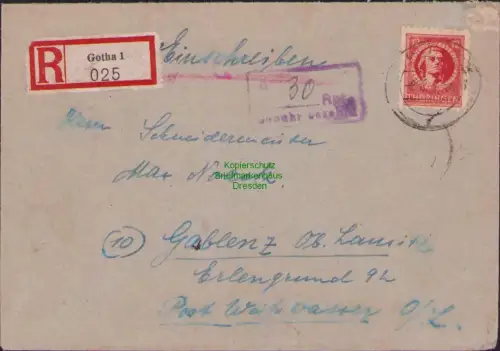 R
Gotha 1
025
Einschreiben
30
THÜRINGEN
Herrn
Schneidermeister
Max
Kopierschutz
Briefmarkenhaus
Dresden
(10) Gablenz Ob. Lausitz
Erlengrund 92
Post Weißwasser O/L.